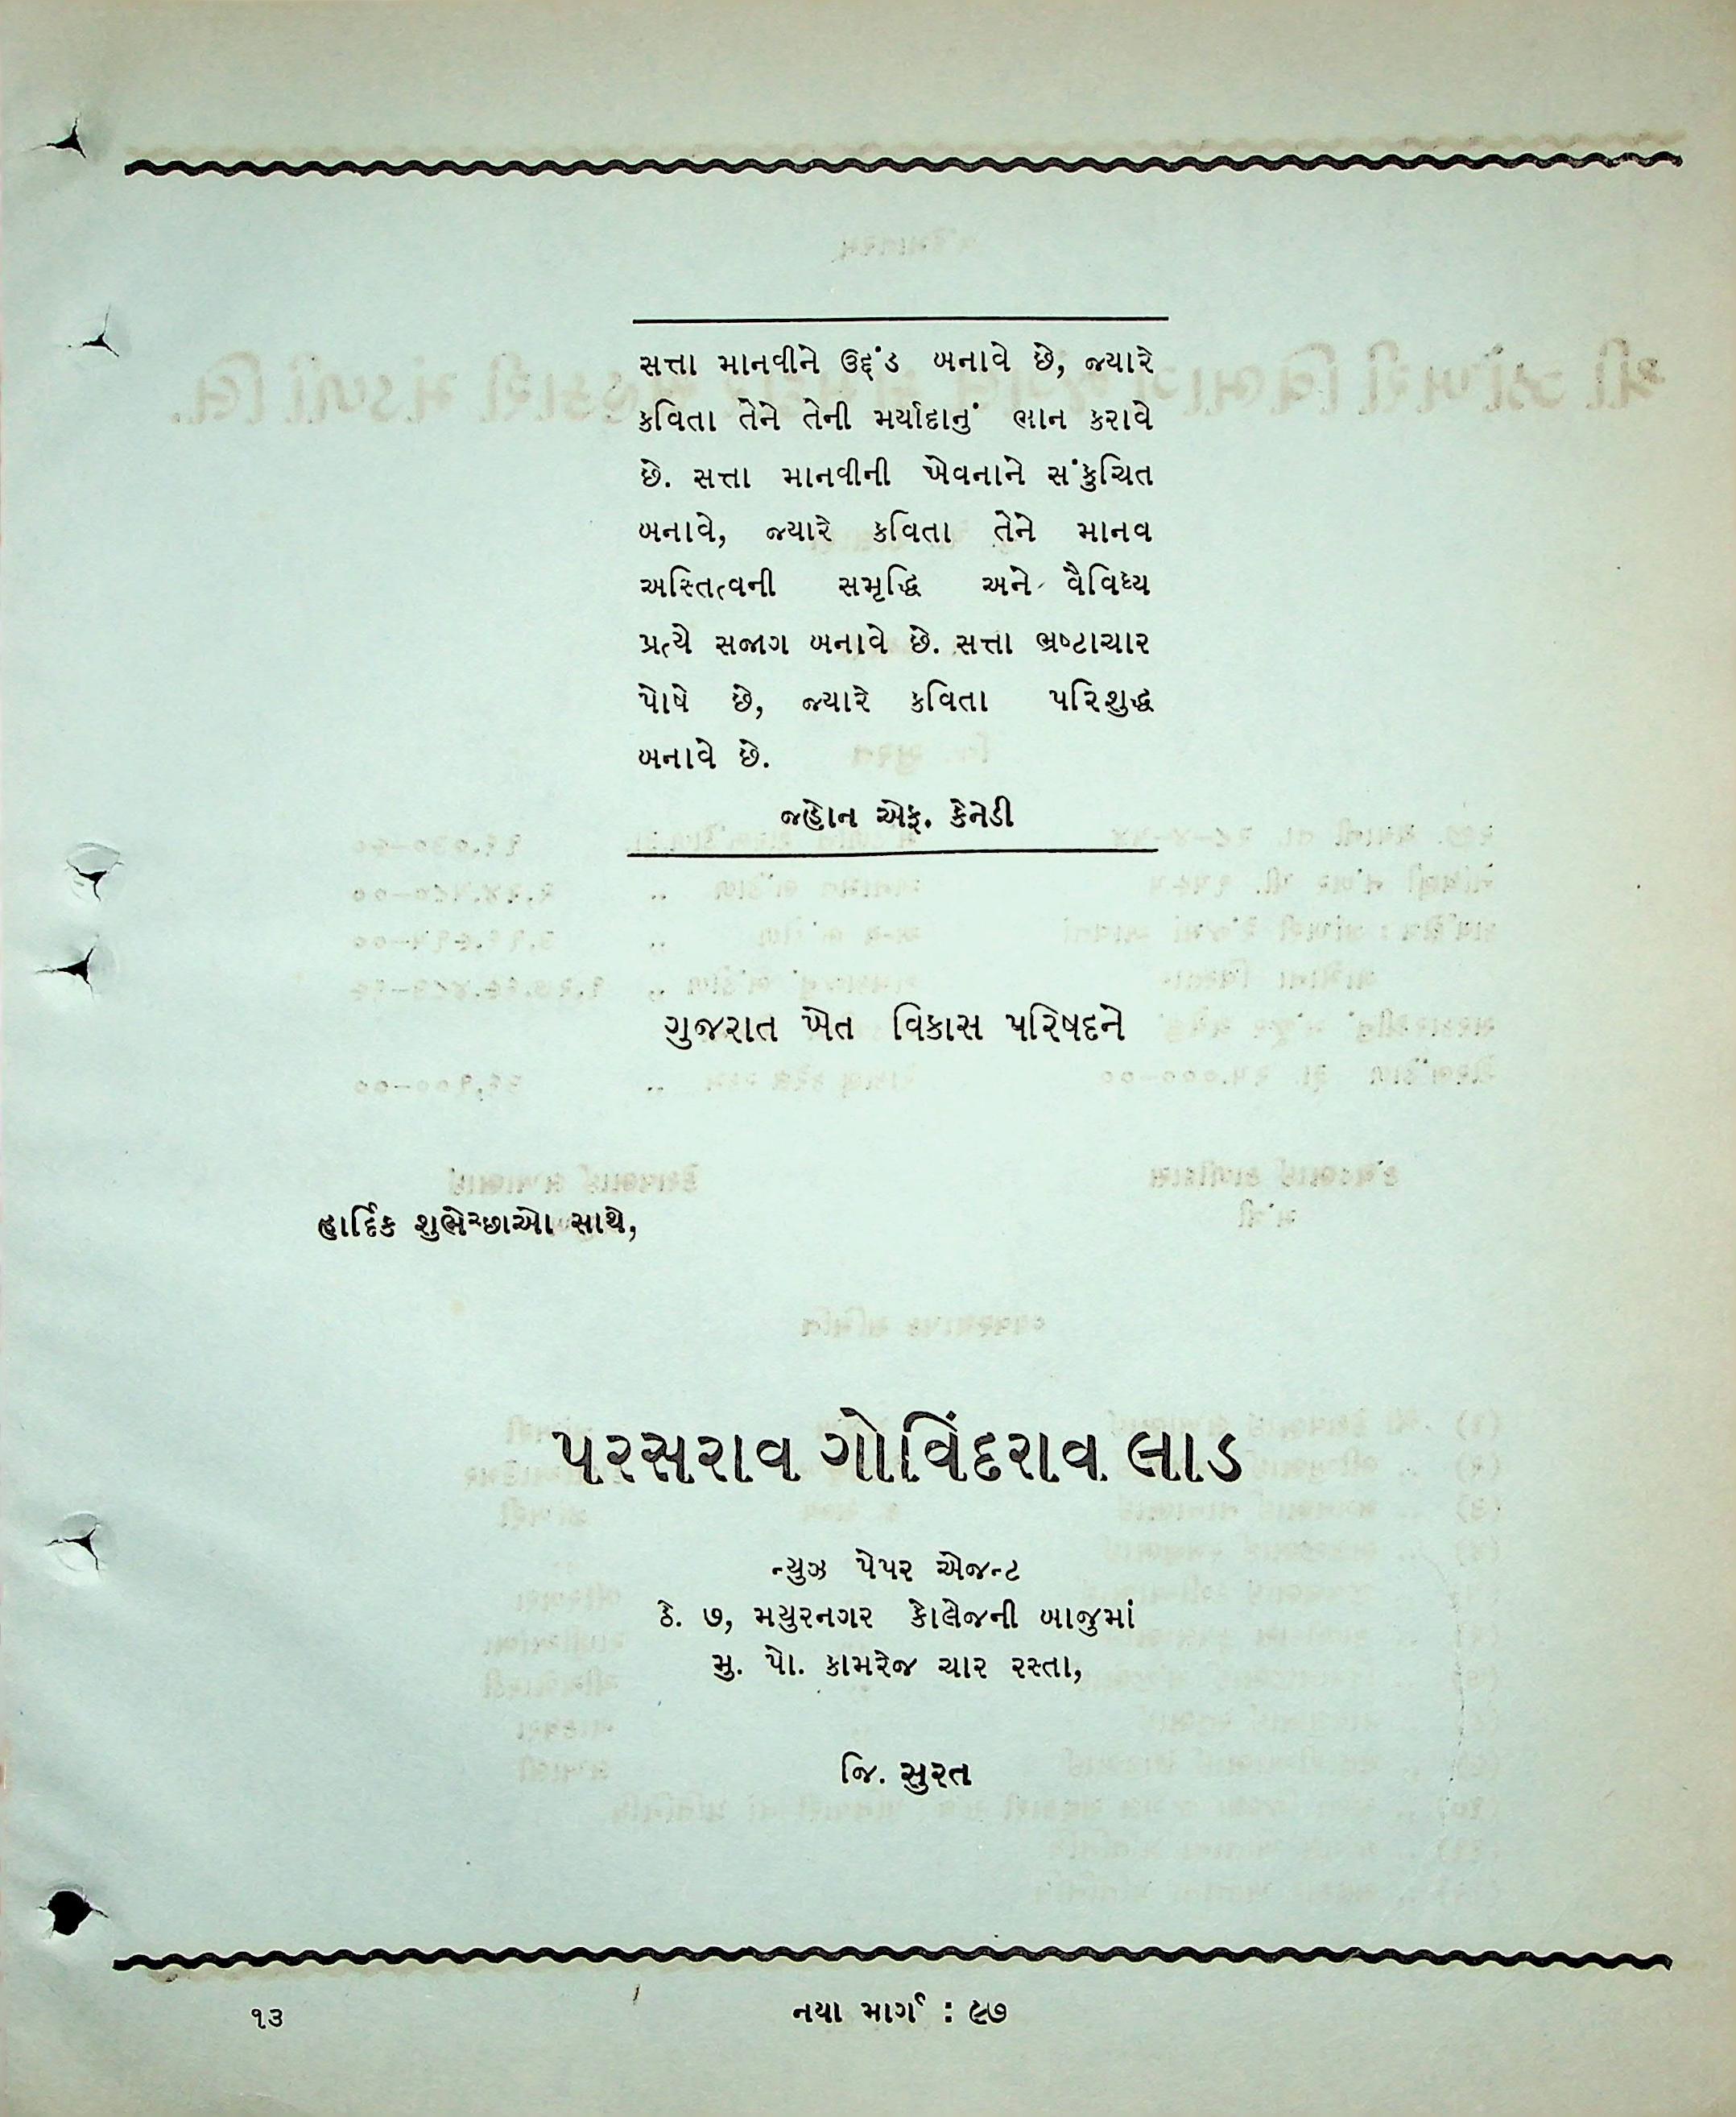 સત્તા માનવીને ઉદ્દંડ બનાવે છે, જ્યારે
કવિતા તેને તેની મર્યાદાનું ભાન કરાવે
છે. સત્તા માનવીની ખેવનાને સંકુચિત
બનાવે, જ્યારે કવિતા તેને માનવ
અસ્તિત્વની સમૃદ્ધિ અને વૈવિધ્ય
પ્રત્યે સજાગ બનાવે છે. સત્તા ભ્રષ્ટાચાર
પોષે છે, જ્યારે કવિતા પરિશુદ્ધ
બનાવે છે.
જ્હોન એફ. કેનેડી
ગુજરાત ખેત વિકાસ પરિષદને
હાર્દિક શુભેચ્છાઓ સાથે,
પરસરાવ ગોવિંદરાવ લાડ
ન્યુઝ પેપર એજન્ટ
ઠે. ૭, મયુરનગર કોલેજની બાજુમાં
મુ. પો. કામરેજ ચાર રસ્તા,
જિ. સુરત
૧૩ નયા માર્ગ : ૯૭